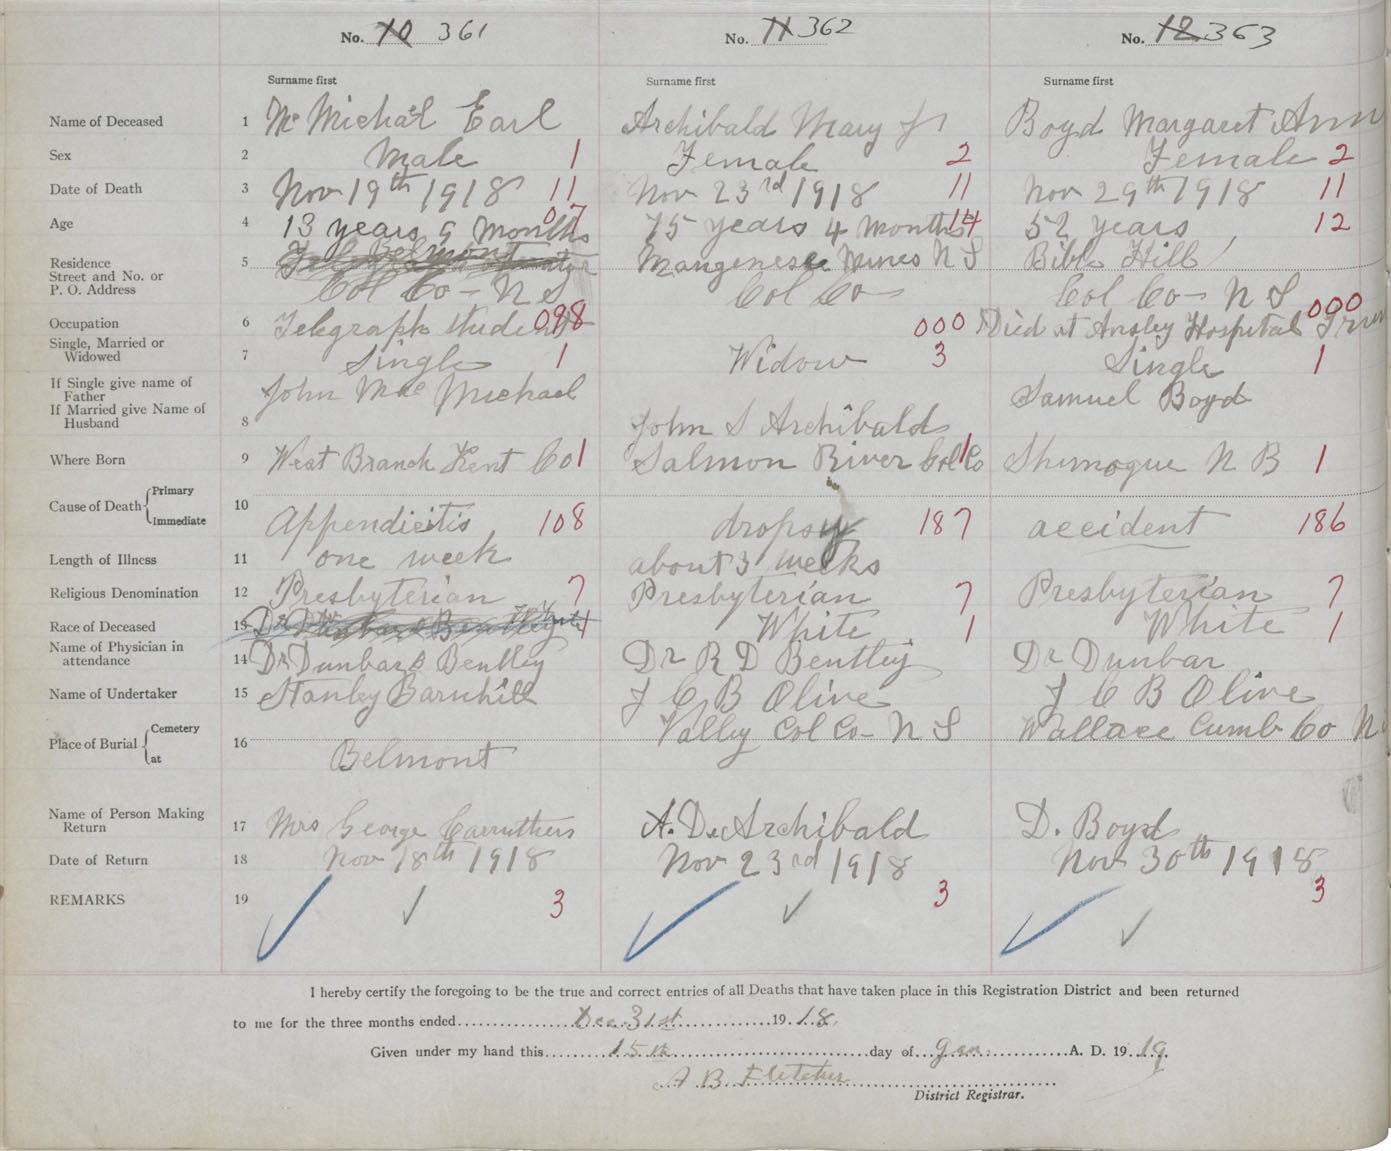 No. 10 361
No. 11 362
No. 12 363
Surname first
Surname first
Surname first
Name of Deceased 1 Mc Michael Earl
Archibald Mary J
Boyd Margaret Ann
Sex 2 Male 1
Female 2
Female 2
Date of Death 3 Nov 19th 1918 11
Nov 23rd 1918 11
Nov 29th 1918 11
Age 4 13 years 9 months 07
75 years 4 months 14
52 years 12
Residence
Street and No. or
P. O. Address
5 Belmont
Col Co - N S
Manganese Mines N S
Col Co
Bible Hill
Col Co - N S
Occupation 6 Telegraph student 098
000
000
Died at Ansley Hospital
Single, Married or
Widowed
7 Single 1
Widow 3
Single 1
If Single give name of
Father
If Married give Name of
Husband
8
John Mac Michael
John S Archibald
Samuel Boyd
Where Born 9 West Branch Kent Co 1
Salmon River Col Co 1
Shemogue N B 1
Cause of Death { Primary
Immediate
10
Appendicitis 108
dropsy 187
accident 186
Length of Illness 11 one week
about 3 weeks
Religious Denomination 12 Presbyterian 7
Presbyterian 7
Presbyterian 7
Race of Deceased 13 White 1
White 1
White 1
Name of Physician in
attendance
14 Dr Dunbar & Bentley
Dr R D Bentley
Dr Dunbar
Name of Undertaker 15 Stanley Barnhill
J C B Olive
J C B Olive
Place of Burial { Cemetery
at
16
Belmont
Valley Col Co - N S
Wallace Cumb Co N
Name of Person Making
Return
17 Mrs George Carruthers
A. D. Archibald
D. Boyd
Date of Return 18 Nov 18th 1918
Nov 23rd 1918
Nov 30th 1918
REMARKS 19 3
3
3
I hereby certify the foregoing to be the true and correct entries of all Deaths that have taken place in this Registration District and been returned
to me for the three months ended Dec 31st 1918.
Given under my hand this 15th day of Jan. A. D. 1919.
A B Fletcher
District Registrar.